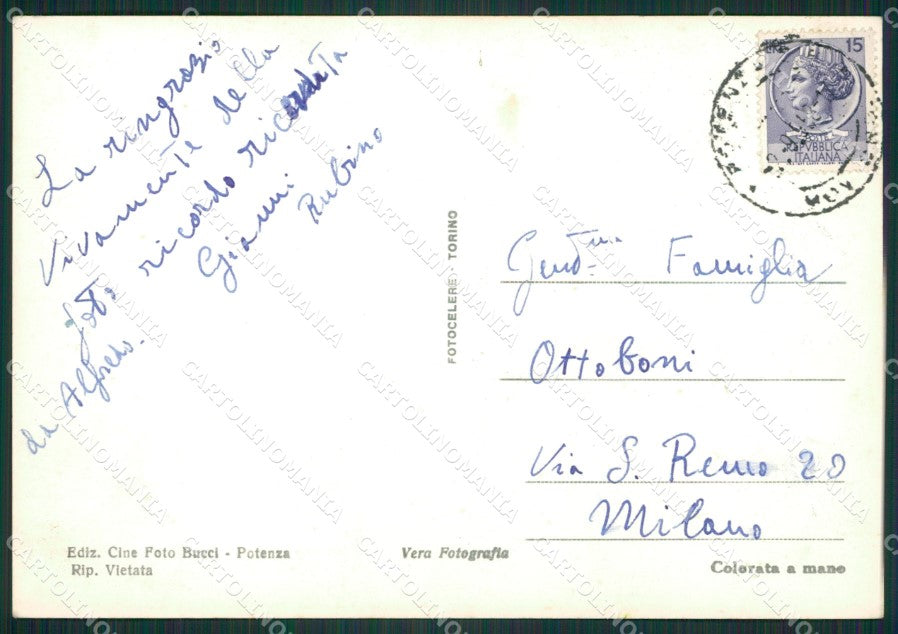 La ringrazio
Vivamente della
foto ricordo ricordata
da Alfredo.
Gianni Rubino
FOTOCELERE - TORINO
15
POSTE
REPVBBLICA
ITALIANA
Gent.ma Famiglia
Ottoboni
Via S. Remo 20
Milano
Ediz. Cine Foto Bucci - Potenza
Rip. Vietata
Vera Fotografia
Colorata a mano
CARTOLINOMANIA